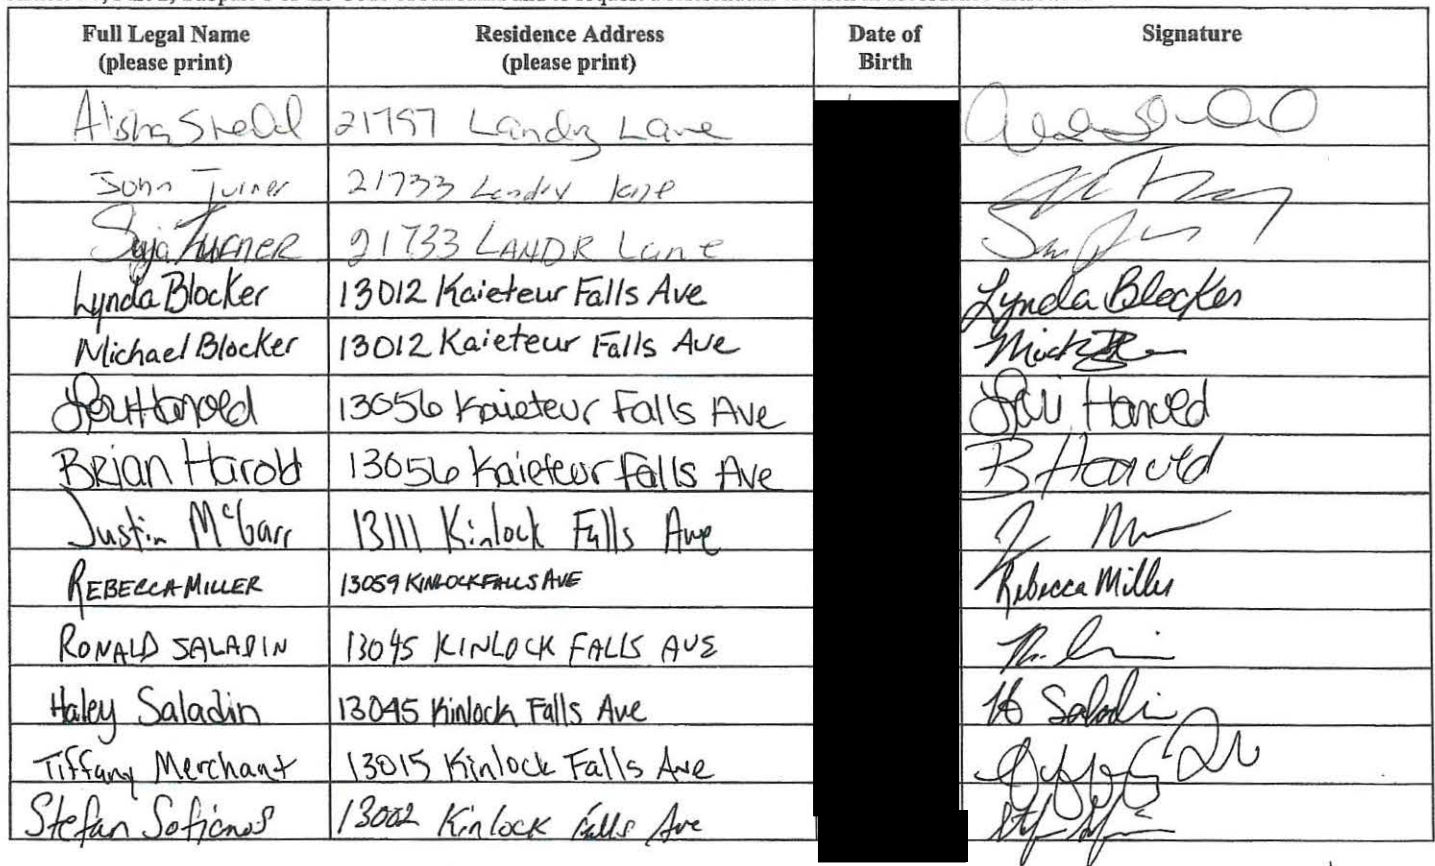 Full Legal Name (please print) Residence Address (please print) Date of Birth Signature
Alisha 21757 Landry Lane
John Turner 21733 Landry lane
Turner 21733 LANDR Lane
Lynda Blocker 13012 Kaieteur Falls Ave Lynda Blocker
Michael Blocker 13012 Kaieteur Falls Ave
Lori Harold 13056 Kaieteur Falls Ave Lori Harold
Brian Harold 13056 Kaieteur Falls Ave B Harold
Justin McGarr 13111 Kinlock Falls Ave
REBECCA MILLER 13059 KINLOCK FALLS AVE Rebecca Miller
RONALD SALADIN 13045 KINLOCK FALLS AVE
Haley Saladin 13045 Kinlock Falls Ave H Saladin
Tiffany Merchant 13015 Kinlock Falls Ave
Stefan 13002 Kinlock Falls Ave